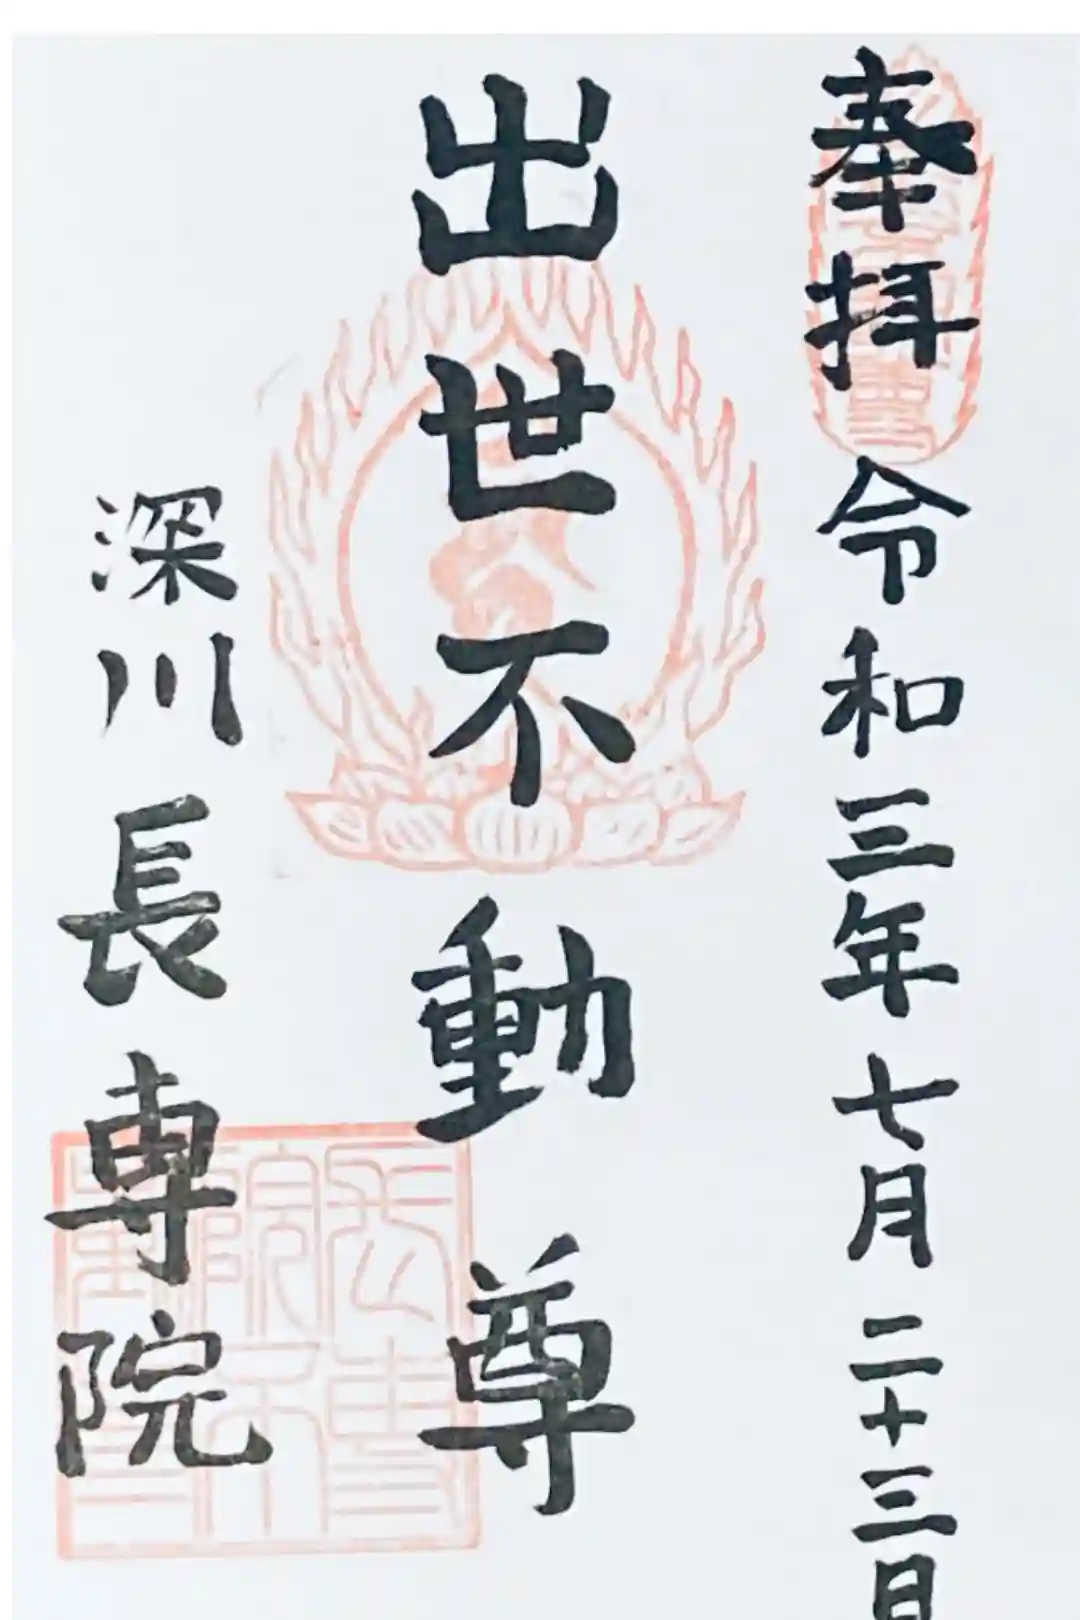 奉拝 令和三年七月二十三日
出世不動尊
深川長専院